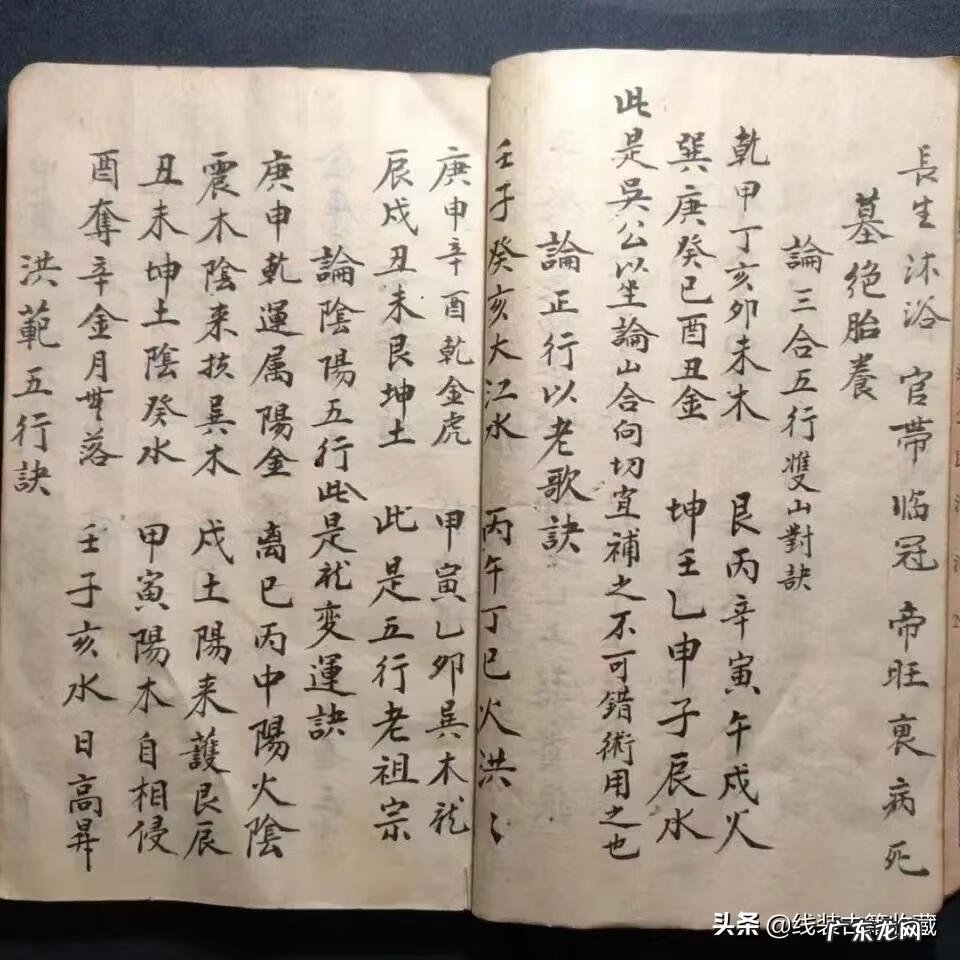 長生 沐浴 官帶 临冠 帝旺 衰 病 死
墓絶胎養
論三合五行双山對訣
乾甲丁亥卯未木 艮丙辛寅午戌火
巽庚癸巳酉丑金 坤壬乙申子辰水
此是吳公以坐論山合向切宜補之不可錯術用之也
論正行以老歌訣
壬子癸亥大江水 丙午丁巳火洪〻
庚申辛酉乾金虎 甲寅乙卯巽木龍
辰戌丑未艮坤土 此是五行老祖宗
論陰陽五行此是龍変運訣
庚申乾運属陽金 离巳丙中陽火陰
震木陰来扶巽木 戌土陽来護艮辰
丑未坤土陰癸水 甲寅陽木自相侵
酉奪辛金月落 壬子亥水日高昇
洪範五行訣
头条 @线装古籍收藏
广东龙网